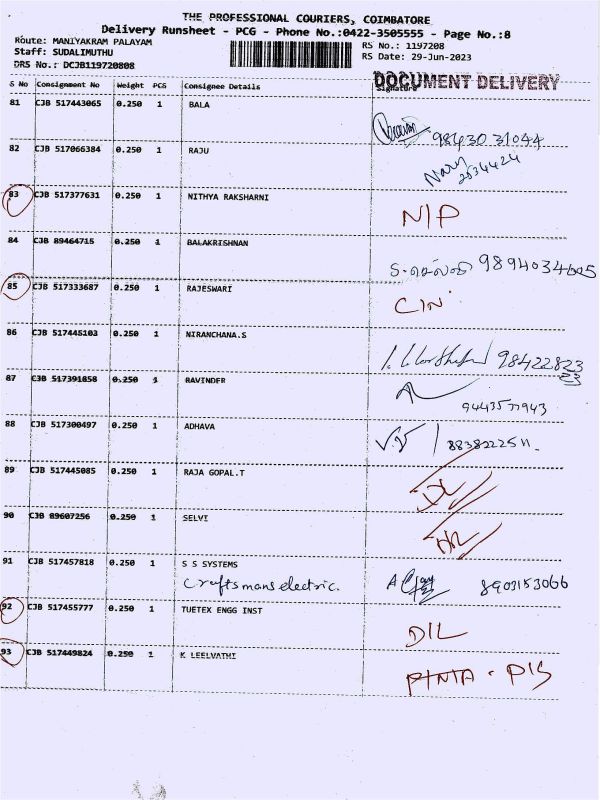 THE PROFESSIONAL COURIERS, COIMBATORE
Delivery Runsheet - PCG - Phone No.:0422-3505555 - Page No.:8
Route: MANIYAKRAM PALAYAM RS No.: 1197208
Staff: SUDALIMUTHU RS Date: 29-Jun-2023
DRS No.: DCJB119720808
DOCUMENT DELIVERY
S No Consignment No Weight PCS Consignee Details Signature
81 CJB 517443065 0.250 1 BALA
98430 31044
82 CJB 517066384 0.250 1 RAJU
2634424
83 CJB 517377631 0.250 1 NITHYA RAKSHARNI
N/P
84 CJB 89464715 0.250 1 BALAKRISHNAN
9894034605
85 CJB 517333687 0.250 1 RAJESWARI
CIN
86 CJB 517445103 0.250 1 NIRANCHANA.S
98422823
23
87 CJB 517391858 0.250 1 RAVINDER
88 CJB 517300497 0.250 1 ADHAVA
V.V / 8838222511.
89 CJB 517445085 0.250 1 RAJA GOPAL.T
90 CJB 89607256 0.250 1 SELVI
91 CJB 517457818 0.250 1 S S SYSTEMS
Craftsmanselectric. 8903153066
92 CJB 517455777 0.250 1 TUETEX ENGG INST
D/L
93 CJB 517449824 0.250 1 K LEELVATHI